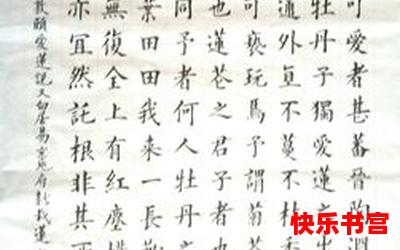 可愛者甚蕃晉陶淵
牡丹予獨愛蓮之出
通外直不蔓不枝香
可褻玩焉予謂菊花
也蓮花之君子者也
同予者何人牡丹之
葉田田我来一長歎
無復全上有紅塵撲
亦宜然託根非其所
敦頤愛蓮說又白居易京兆府新栽蓮
快乐书宫